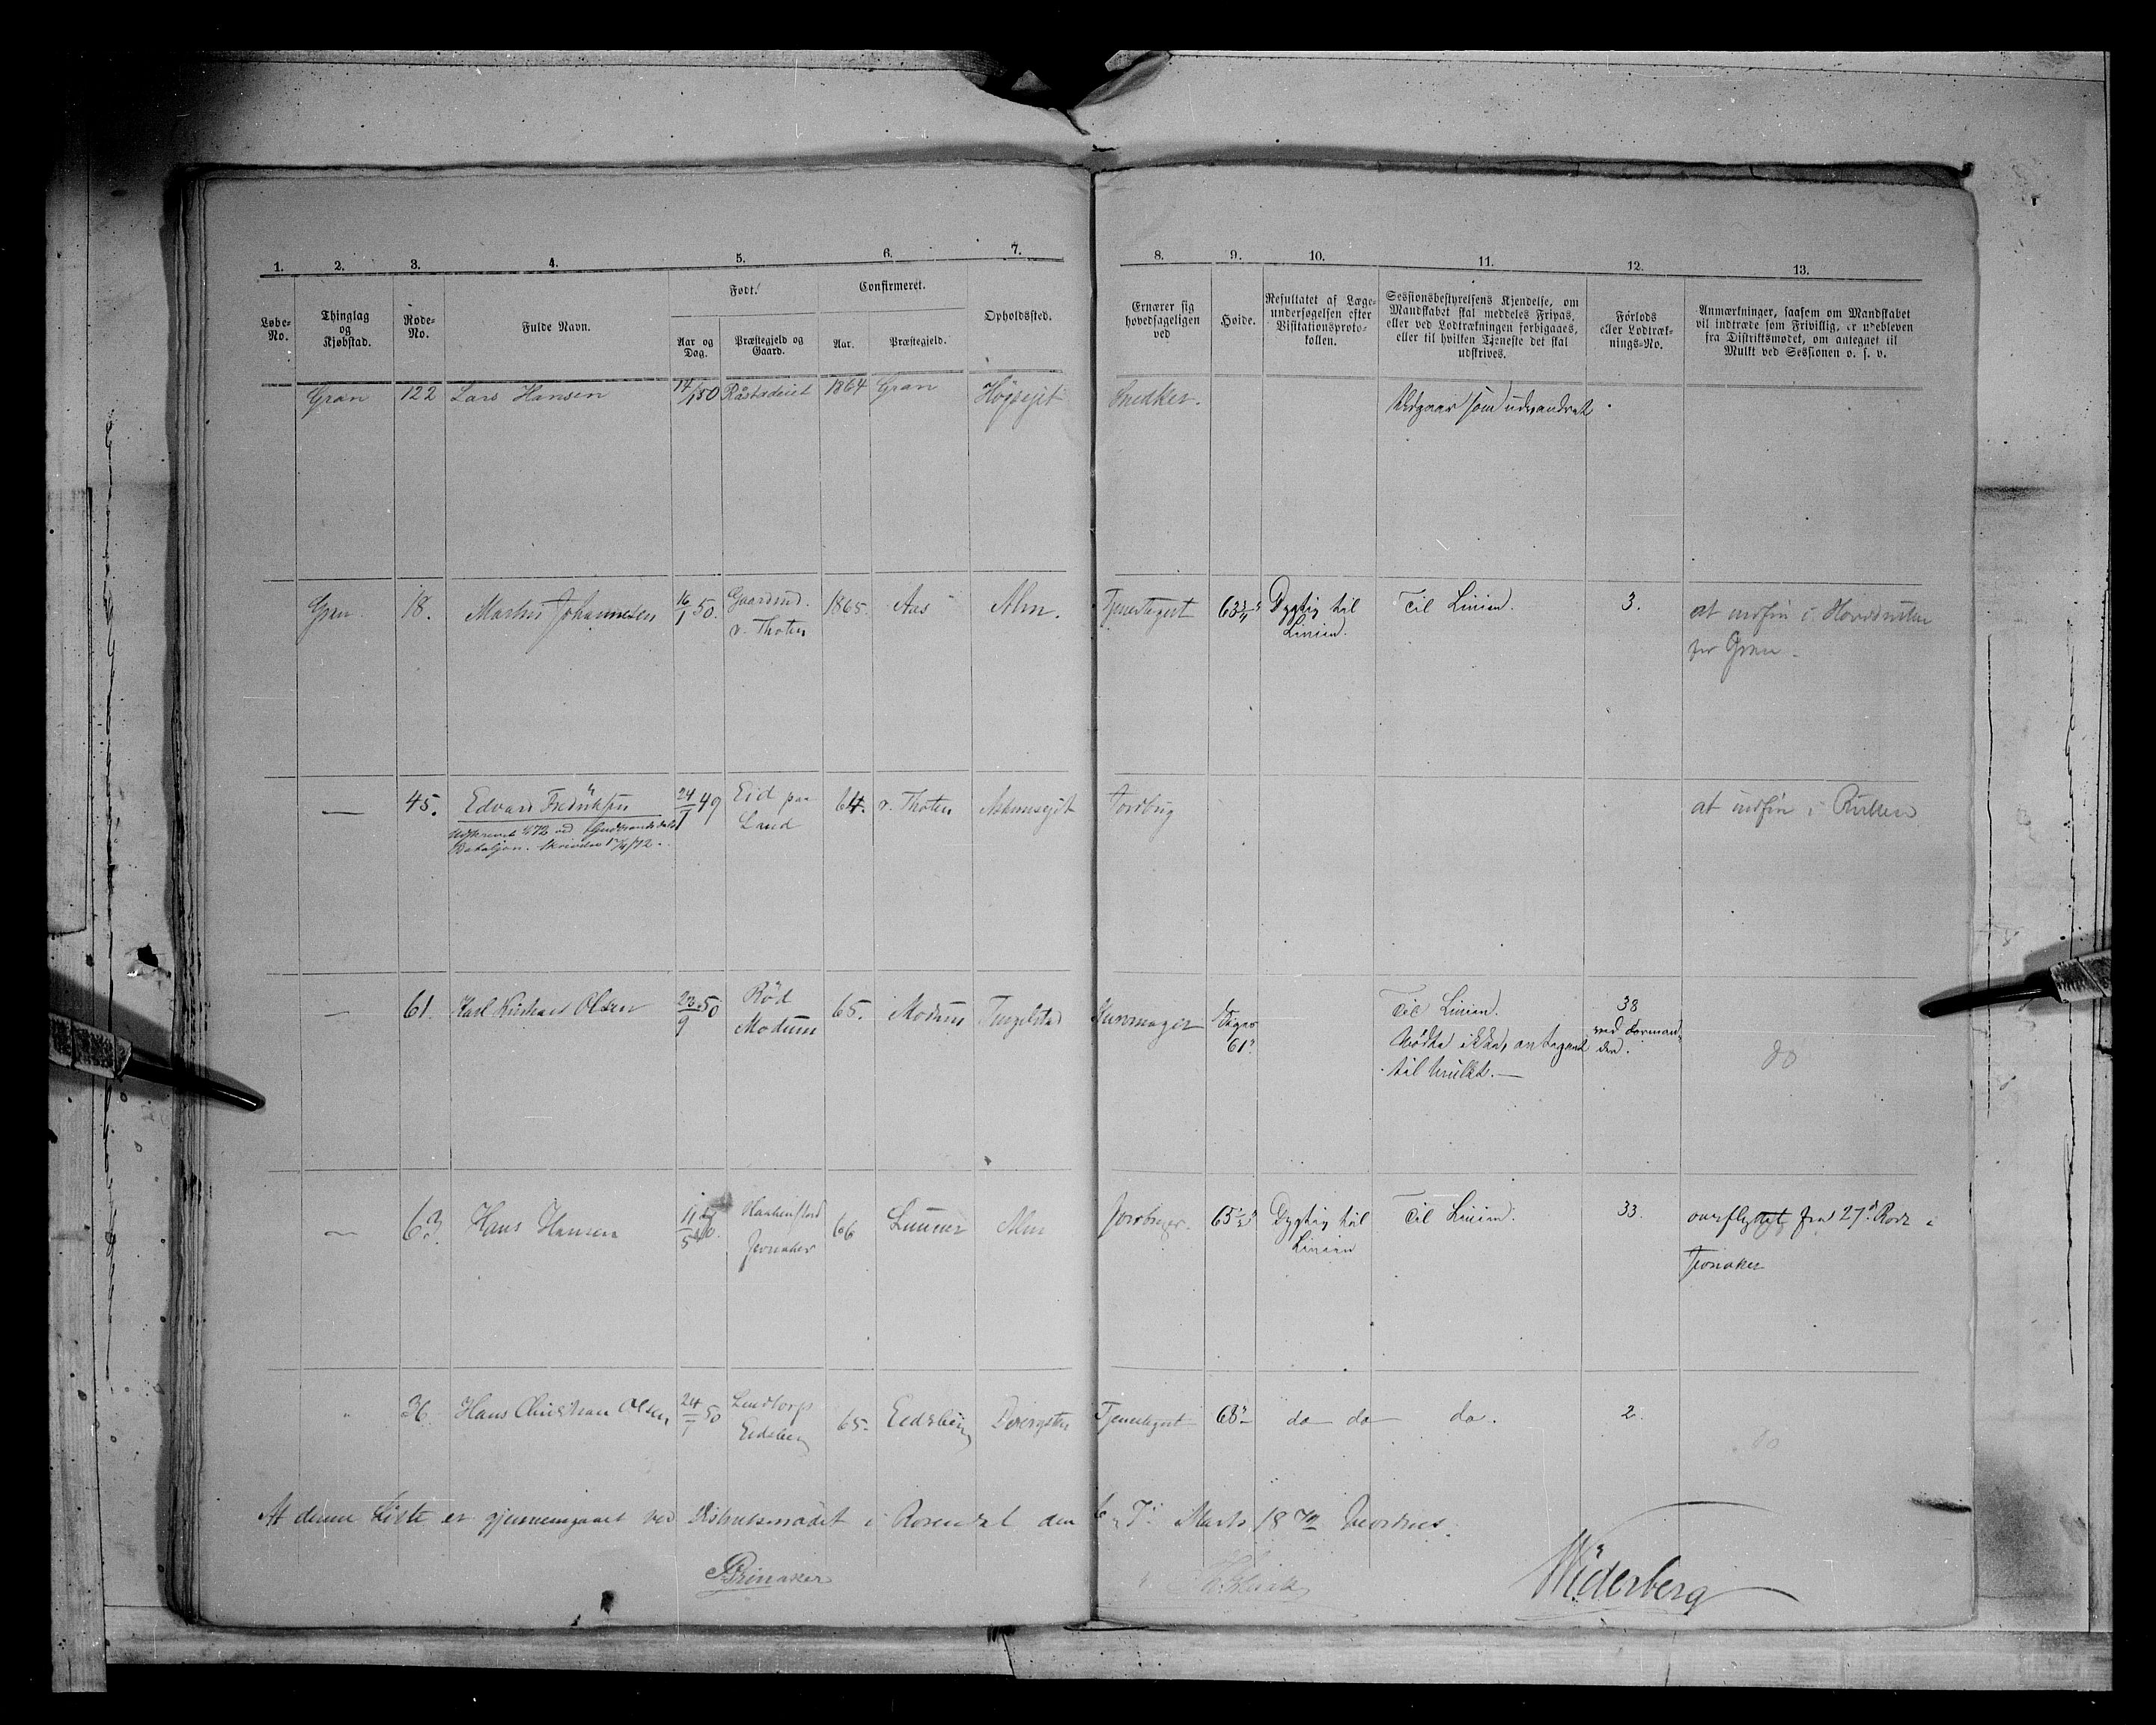 1. 2. 3. 4. 5. 6. 7. 8. 9. 10. 11. 12. 13.
Løbe-No.
Thinglag og Kjøbstad.
Rode-No.
Fulde Navn.
Født.
Aar og Dag.
Præstegjeld og Gaard.
Confirmeret.
Aar.
Præstegjeld.
Opholdssted.
Ernærer sig hovedsageligen ved
Høide.
Resultatet af Lægeundersøgelsen efter Visitationsprotokollen.
Sessionsbestyrelsens Kjendelse, om Mandskabet skal meddeles Fripas, eller ved Lodtrækningen forbigaaes, eller til hvilken Tjeneste det skal udskrives.
Forlods eller Lodtræknings-No.
Anmærkninger, saasom om Mandskabet vil indtræde som Frivillig, er udebleven fra Distriktsmødet, om antegnet til Mulkt ved Sessionen o. s. v.
Gran 122 Lars Hansen 14/1 50 Råstadeiet 1864 Gran Høgsejet Snedker. Udgaar som udvandret.
Gran. 18. Johannesen 16/1 50. 1865. Aas Alm. Tjenestegut 63 Dygtig til Til Linien. 3. at indføre i Hovedrullen
v. Thoten Linien. for Gran.
— 45. Edvard Fredriksen 24/1 49 Eid paa 64. v. Thoten Jordbrug at indføre i Rullen
Land
Udskrevet 1872 ved Gudbrandsdals
Bataljon.
— 61. Karl Olsen 23/9 50 Rød 65. Modum Tingelstad 61" Til Linien. 38
Modum Mødte ikke, antegnet ved Formanden.
til Mulkt. — do
— 63. Hans Hansen 11/5 66 Lunner Alm 65 Dygtig til Til Linien. 33. overflyttet fra 27de Rode i
Jevnaker Linien Jevnaker
" 36. Hans Christian Olsen 24/1 50 Lindtorp 65. Eidsberg Tjenestegut 68" do do do. 2. do
Eidsberg
At denne Liste er gjennemgaaet ved Distriktsmødet i Rosendal den 6 - 7 Marts 1872
Brinaker
Widerberg